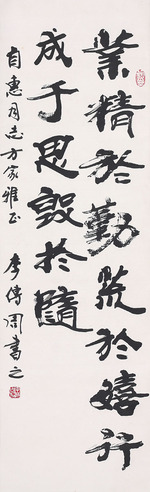 業精於勤荒於嬉行
成于思毁於隨
自惠同志方家雅正 李傳周書之